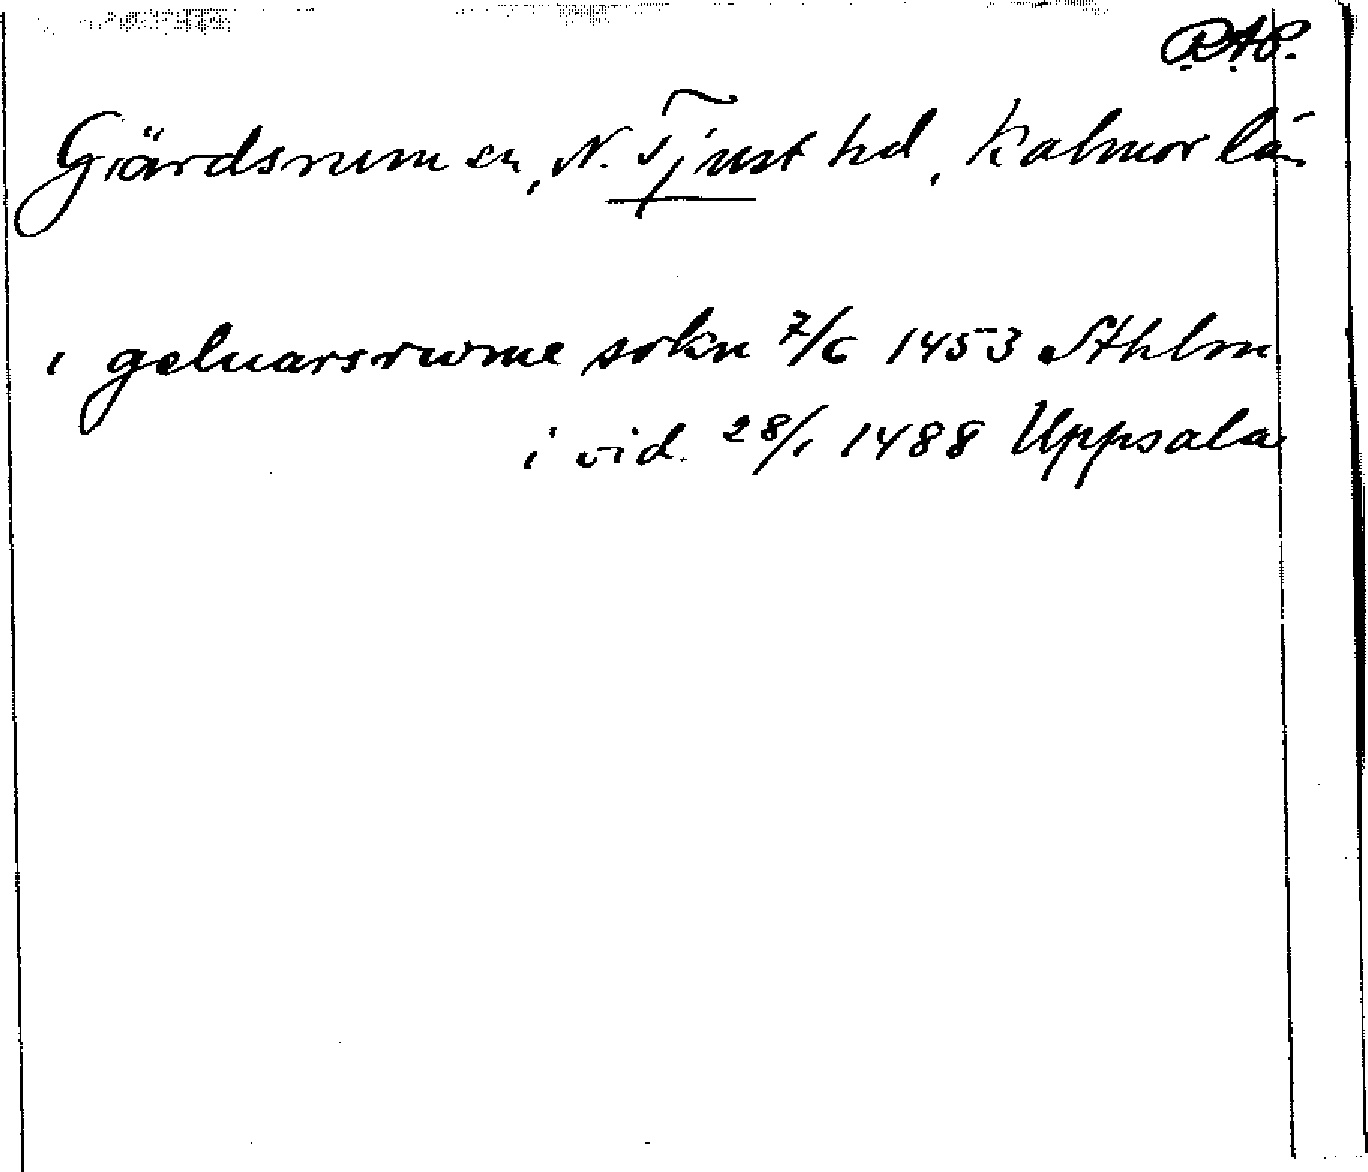 R.A.P.
Gärdsrum sn, N. Tjust hd, Kalmar län
i geluarsrwme sokn 7/6 1453 Sthlm
i vid. 28/1 1488 Uppsala